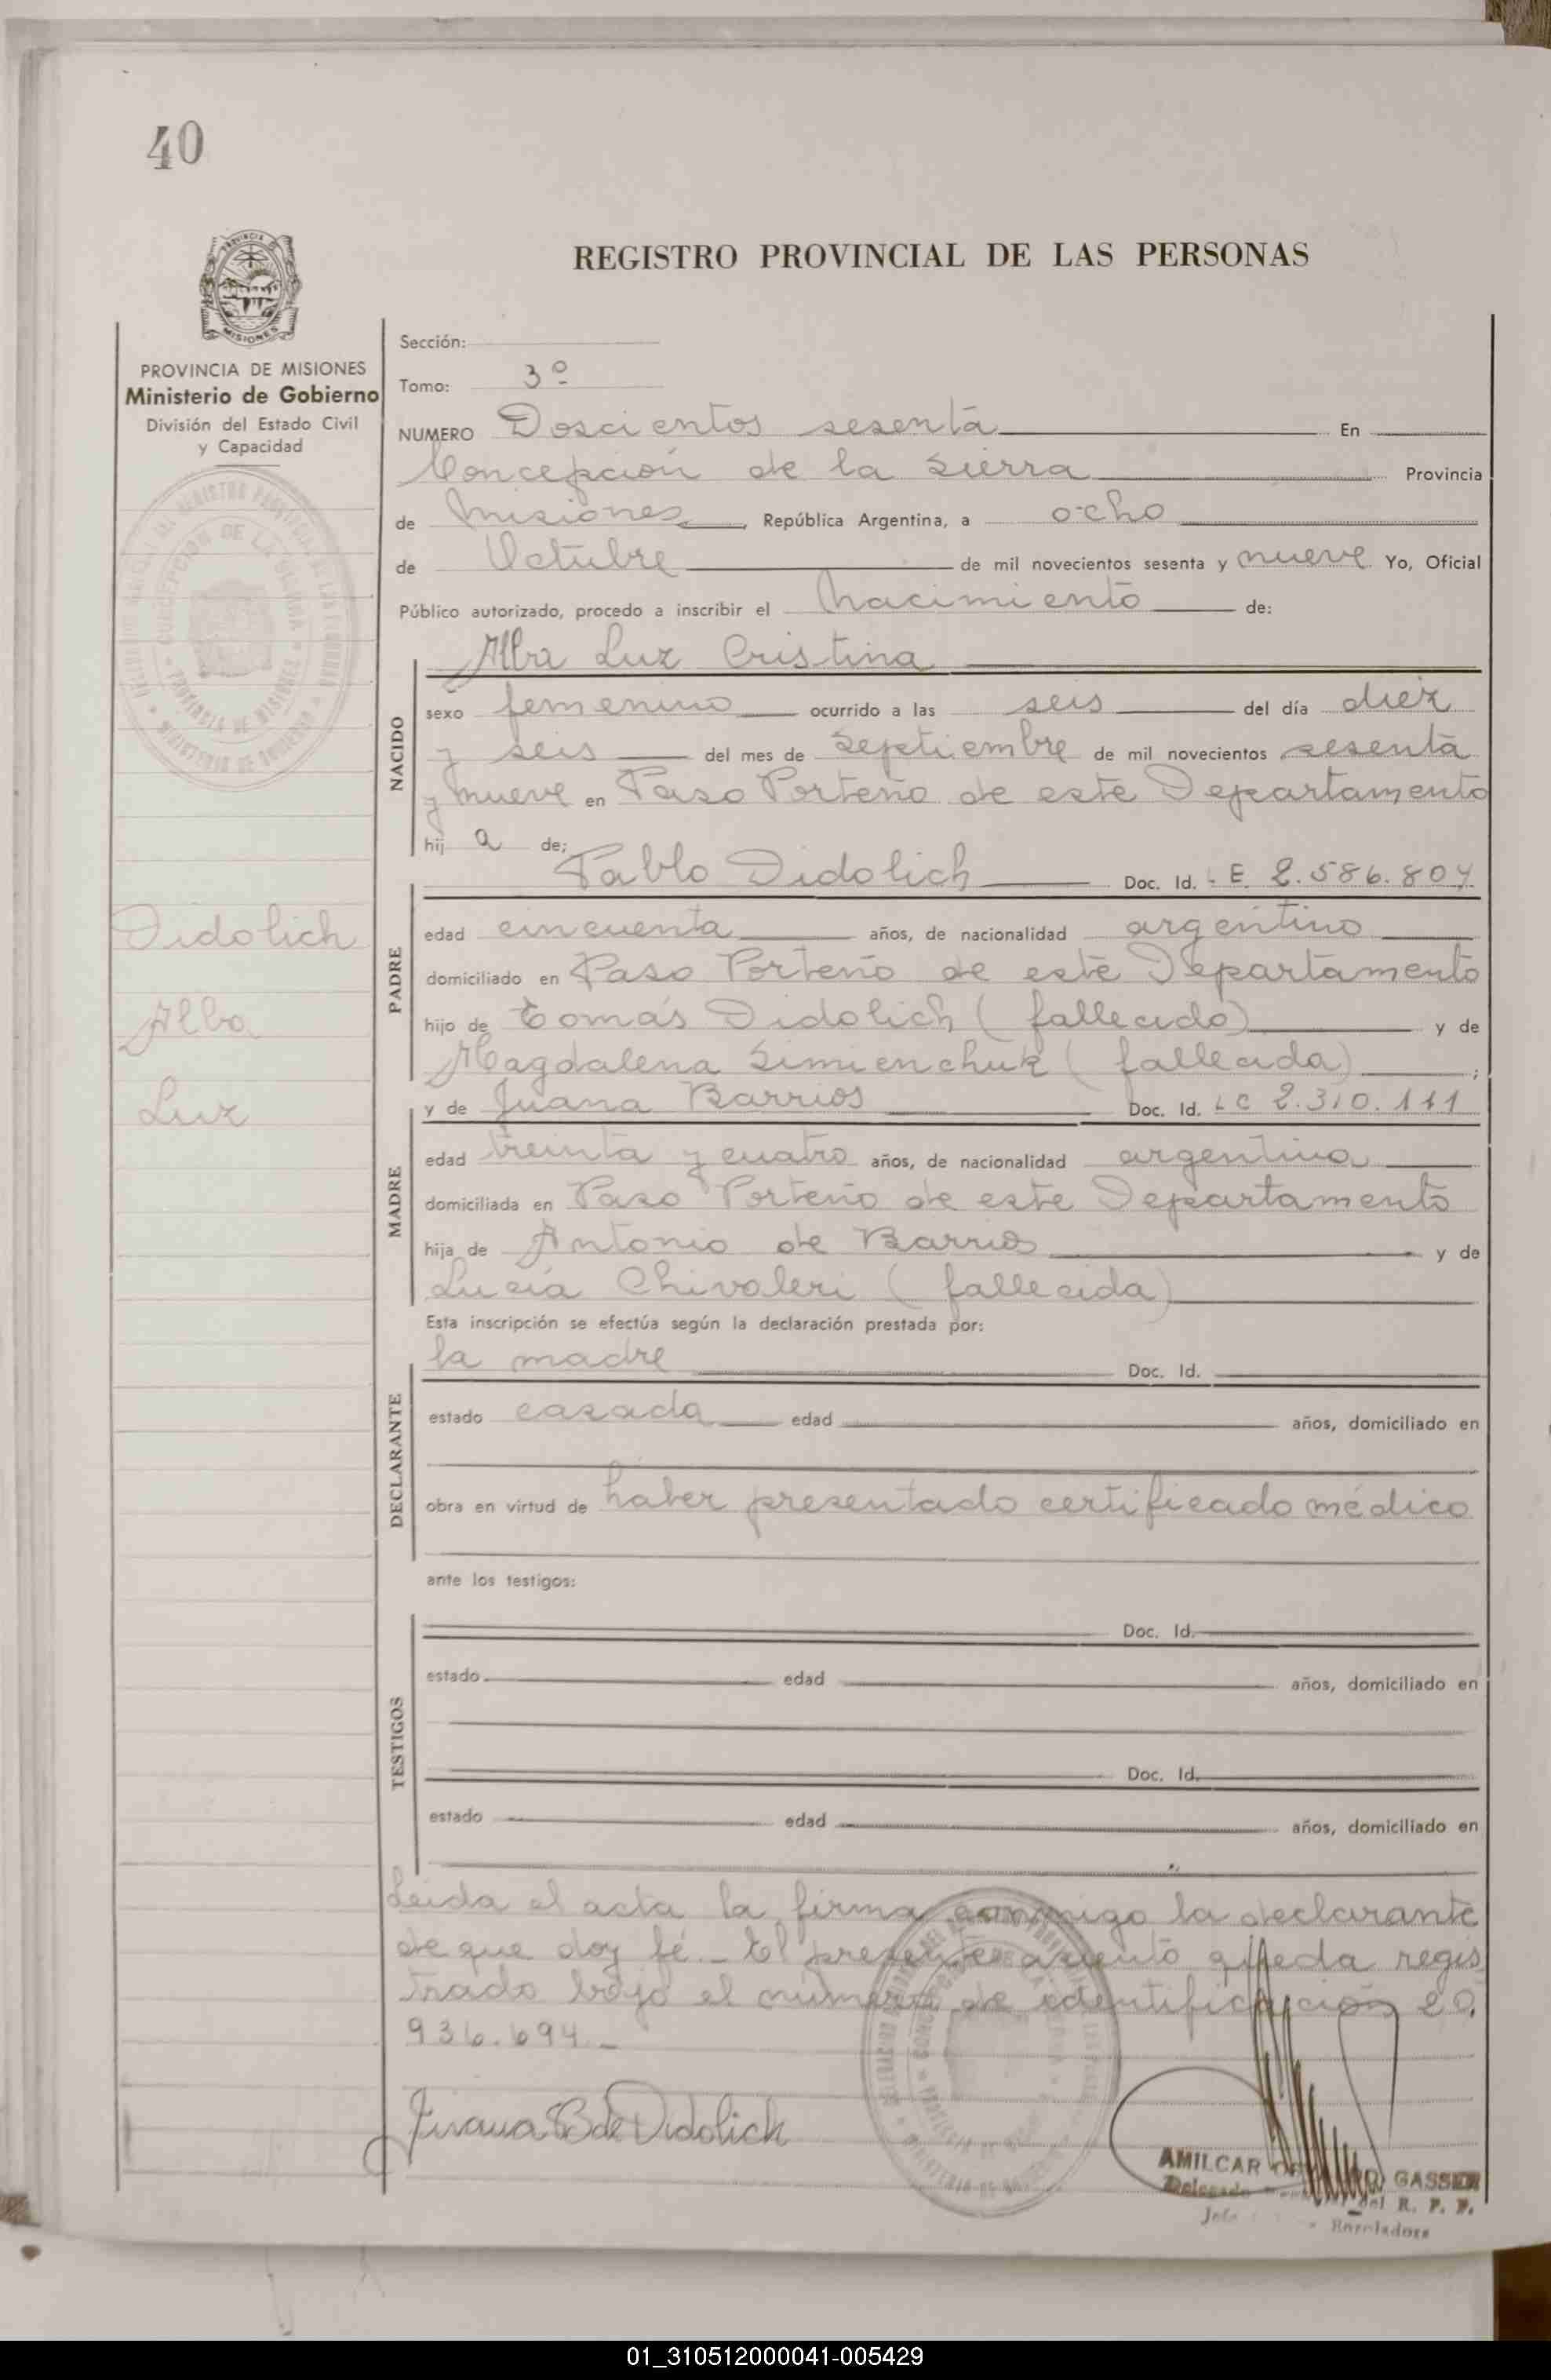 40
REGISTRO PROVINCIAL DE LAS PERSONAS
PROVINCIA DE MISIONES
Ministerio de Gobierno
División del Estado Civil
y Capacidad
Didolich
Alba
Luz
Sección:
Tomo: 3º
NUMERO Doscientos sesenta En
Concepción de la Sierra Provincia
de Misiones, República Argentina, a ocho
de Octubre de mil novecientos sesenta y nueve Yo, Oficial
Público autorizado, procedo a inscribir el Nacimiento de:
Alba Luz Cristina
NACIDO
sexo femenino ocurrido a las seis del día diez
y seis del mes de Septiembre de mil novecientos sesenta
y nueve en Paso Porteño de este Departamento
hij a de:
Pablo Didolich Doc. Id. LE 2.586.804
PADRE
edad cincuenta años, de nacionalidad argentino
domiciliado en Paso Porteño de este Departamento
hijo de Tomás Didolich (fallecido) y de
Magdalena Simienchuk (fallecida);
y de Juana Barrios Doc. Id. LC 2.310.111
MADRE
edad treinta y cuatro años, de nacionalidad argentina
domiciliada en Paso Porteño de este Departamento
hija de Antonio de Barrios y de
Lucía Chivaleri (fallecida)
Esta inscripción se efectúa según la declaración prestada por:
la madre Doc. Id.
DECLARANTE
estado casada edad años, domiciliado en
obra en virtud de haber presentado certificado médico
ante los testigos:
Doc. Id.
TESTIGOS
estado edad años, domiciliado en
Doc. Id.
estado edad años, domiciliado en
Leida el acta la firma conmigo la declarante
de que doy fé.- El presente asiento queda regis
trado bajo el número de identificación 20.
936.694.-
Juana B de Didolich
AMILCAR GASSER
Delegado del R. P. P.
Jefe Enroladora
01_310512000041-005429